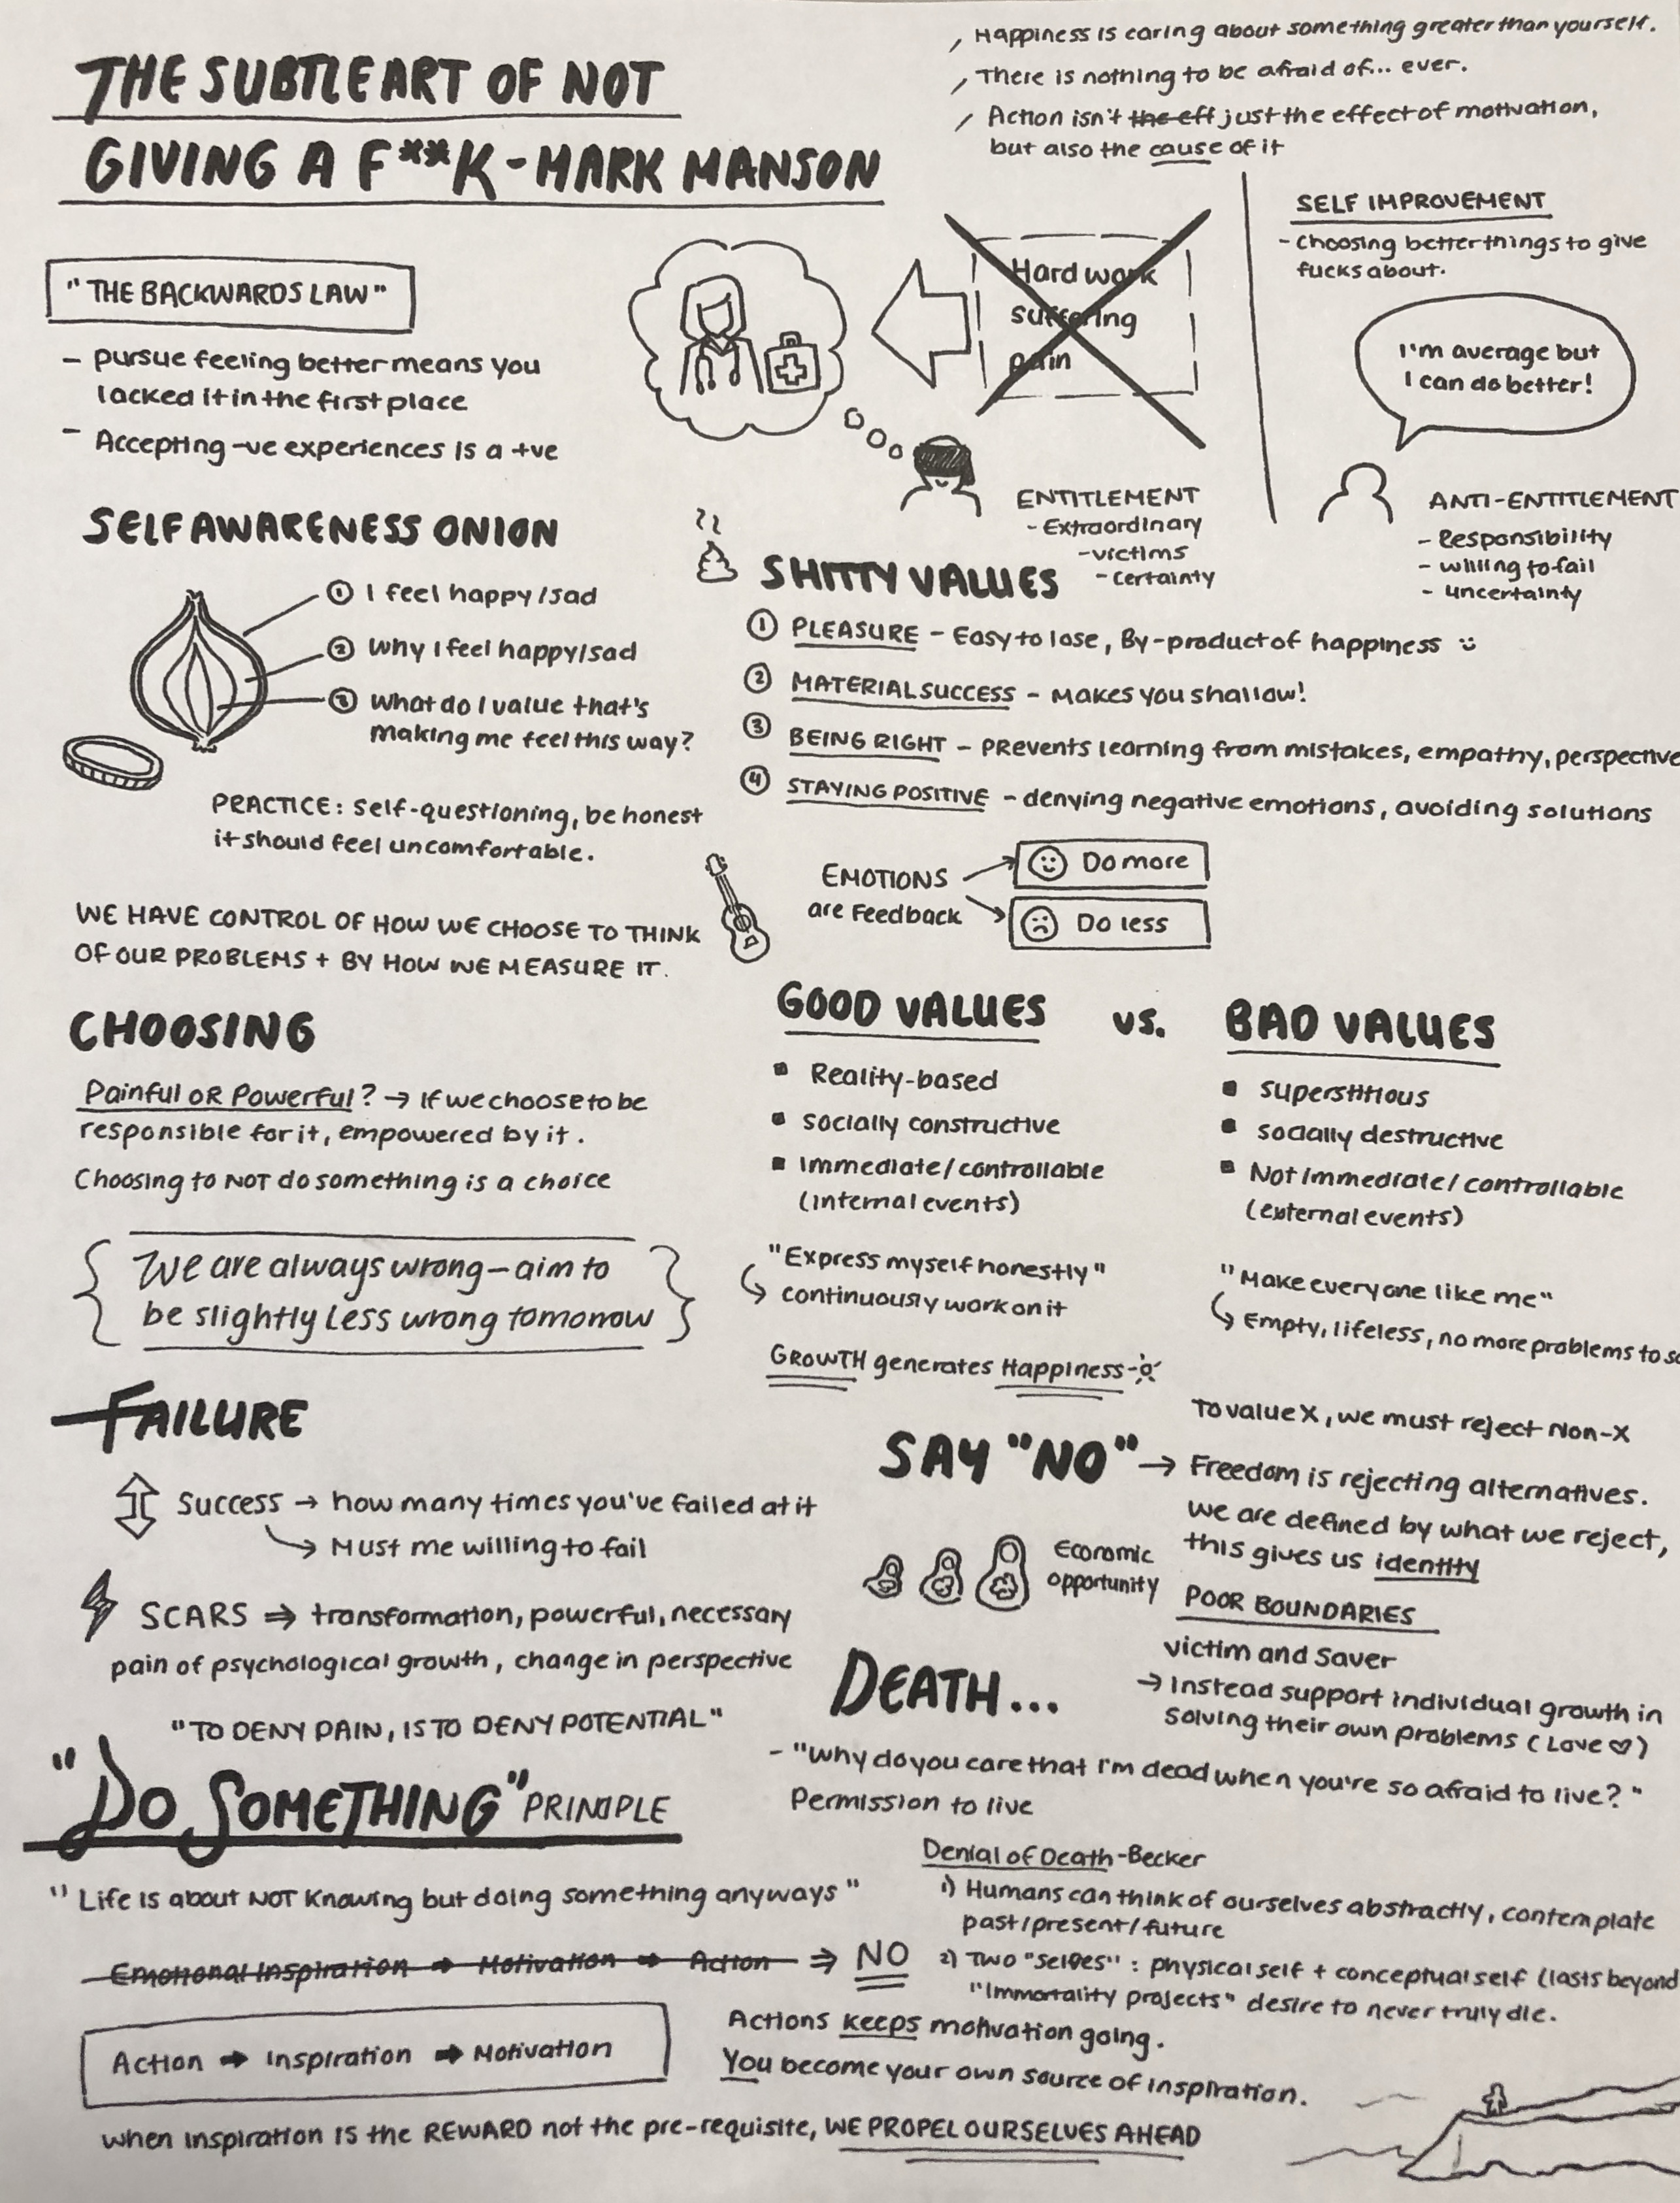 THE SUBTLE ART OF NOT
GIVING A F**K - MARK MANSON
/ Happiness is caring about something greater than yourself.
/ There is nothing to be afraid of... ever.
/ Action isn't the eff just the effect of motivation,
but also the cause of it
"THE BACKWARDS LAW"
- pursue feeling better means you
lacked it in the first place
- Accepting -ve experiences is a +ve
Hard work
suffering
pain
ENTITLEMENT
- Extraordinary
- victims
- certainty
SELF IMPROVEMENT
- Choosing better things to give
fucks about.
I'm average but
I can do better!
ANTI-ENTITLEMENT
- Responsibility
- willing to fail
- uncertainty
SELF AWARENESS ONION
① I feel happy/sad
② Why I feel happy/sad
③ What do I value that's
making me feel this way?
PRACTICE: Self-questioning, be honest
it should feel uncomfortable.
WE HAVE CONTROL OF HOW WE CHOOSE TO THINK
OF OUR PROBLEMS + BY HOW WE MEASURE IT.
SHITTY VALUES
① PLEASURE - Easy to lose, By-product of happiness
② MATERIAL SUCCESS - Makes you shallow!
③ BEING RIGHT - Prevents learning from mistakes, empathy, perspective
④ STAYING POSITIVE - denying negative emotions, avoiding solutions
EMOTIONS
are Feedback
Do more
Do less
CHOOSING
Painful OR Powerful? → If we choose to be
responsible for it, empowered by it.
Choosing to NOT do something is a choice
{ We are always wrong - aim to
be slightly less wrong tomorrow }
GOOD VALUES vs. BAD VALUES
▪ Reality-based
▪ socially constructive
▪ Immediate/controllable
(internal events)
"Express myself honestly"
↳ continuously work on it
GROWTH generates Happiness
▪ superstitious
▪ socially destructive
▪ Not immediate/controllable
(external events)
"Make everyone like me"
↳ Empty, lifeless, no more problems to
FAILURE
Success → how many times you've failed at it
↳ Must me willing to fail
SCARS ⇒ transformation, powerful, necessary
pain of psychological growth, change in perspective
"TO DENY PAIN, IS TO DENY POTENTIAL"
To value X, we must reject Non-X
SAY "NO" → Freedom is rejecting alternatives.
We are defined by what we reject,
this gives us identity
Economic
opportunity
POOR BOUNDARIES
victim and saver
→ Instead support individual growth in
solving their own problems (Love ♡)
DEATH...
- "Why do you care that I'm dead when you're so afraid to live?"
Permission to live
Denial of Death - Becker
1) Humans can think of ourselves abstractly, contemplate
past/present/future
2) Two "selves": physical self + conceptual self (lasts beyond
"Immortality projects" desire to never truly die.
"DO SOMETHING" PRINCIPLE
"Life is about NOT Knowing but doing something anyways"
Emotional Inspiration → Motivation → Action ⇒ NO
Action → Inspiration → Motivation
Actions keeps motivation going.
You become your own source of inspiration.
when inspiration is the REWARD not the pre-requisite, WE PROPEL OURSELVES AHEAD